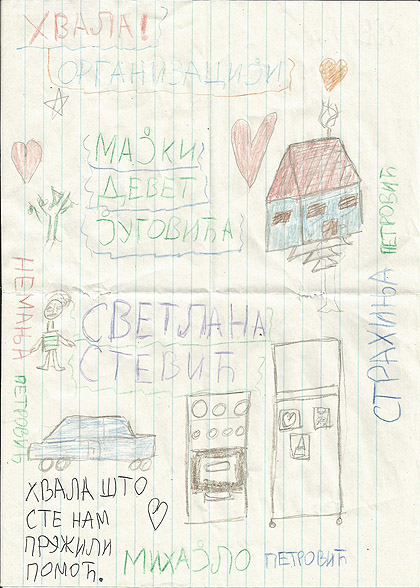 ХВАЛА!
ОРГАНИЗАЦИЈИ
МАЈКИ
ДЕВЕТ
ЈУГОВИЋА
НЕМАЊА ПЕТРОВИЋ
СВЕТЛАНА
СТЕВИЋ
СТРАХИЊА ПЕТРОВИЋ
ХВАЛА ШТО
СТЕ НАМ
ПРУЖИЛИ
ПОМОЋ.
МИХАЈЛО ПЕТРОВИЋ